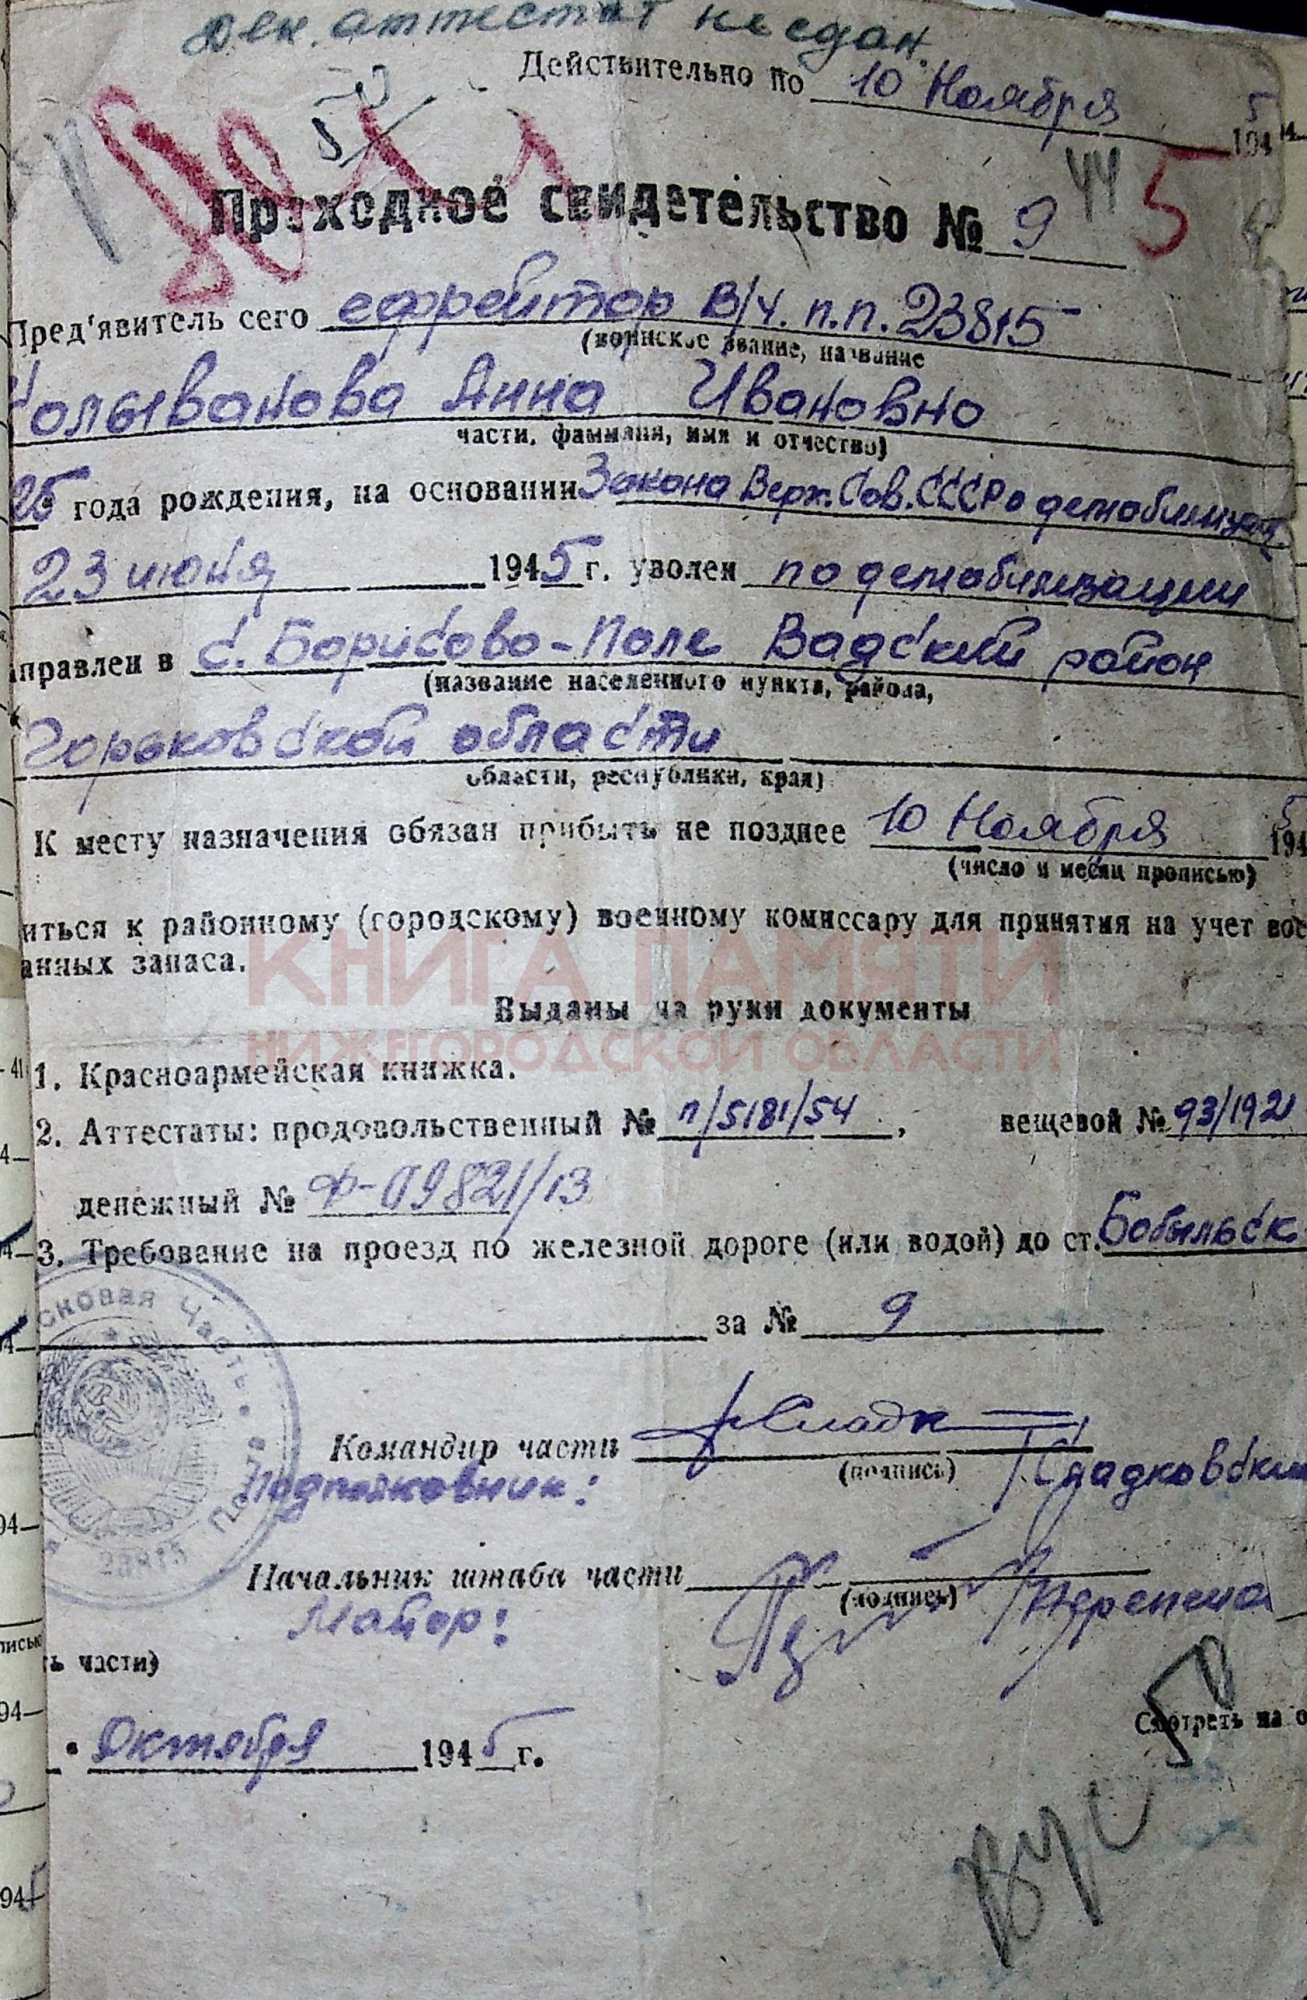 Ден. аттестат не сдан.
Действительно по 10 Ноября 1945
Проходное свидетельство № 9
44 5
Пред'явитель сего ефрейтор В/ч. п.п. 23815
(воинское звание, название
Колыванова Анна Ивановно
части, фамилия, имя и отчество)
25 года рождения, на основании Закона Верх. Сов. СССР о демобилизац
23 июня 1945 г. уволен по демобилизации
правлен в с. Борисово-Поле Вадский район
(название населенного пункта, района,
Горьковской области
области, республики, края)
К месту назначения обязан прибыть не позднее 10 Ноября 1945
(число и месяц прописью)
иться к районному (городскому) военному комиссару для принятия на учет вое
анных запаса.
КНИГА ПАМЯТИ
НИЖЕГОРОДСКОЙ ОБЛАСТИ
Выданы на руки документы
1. Красноармейская книжка.
2. Аттестаты: продовольственный № п/5181/54, вещевой № 93/1921
денежный № Ф-09821/13
3. Требование на проезд по железной дороге (или водой) до ст. Бобыльск
за № 9
сковая Часть Полевая 23815
Командир части
(подпись)
Подполковник: /Сладковский
Начальник штаба части
(подпись)
Майор:
ь части)
Октября 1945 г.
50
Смотреть на о
ВУС